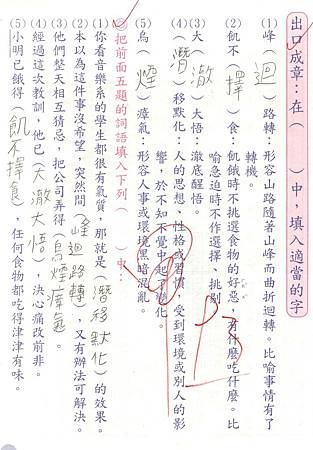 出口成章：在（　）中，填入適當的字
(1)峰（迴）路轉：形容山路隨著山峰而曲折迴轉。比喻事情有了
轉機。
(2)飢不（擇）食：飢餓時不挑選食物的好惡，有什麼吃什麼。比
喻急迫時不作選擇、挑剔
(3)大（澈）大悟：澈底醒悟。
(4)（潛）移默化：人的思想、性格或習慣，受到環境或別人的影
響，於不知不覺中起了變化。
(5)烏（煙）瘴氣：形容人事或環境黑暗混亂。
把前面五題的詞語填入下列（　）中：
(1)你看音樂系的學生都很有氣質，那就是（潛移默化）的效果。
(2)本以為這件事沒希望，突然間（峰迴路轉），又有辦法可解決。
(3)他們整天相互猜忌，把公司弄得（烏煙瘴氣）。
(4)經過這次教訓，他已（大澈大悟），決心痛改前非。
(5)小明已餓得（飢不擇食），任何食物都吃得津津有味。